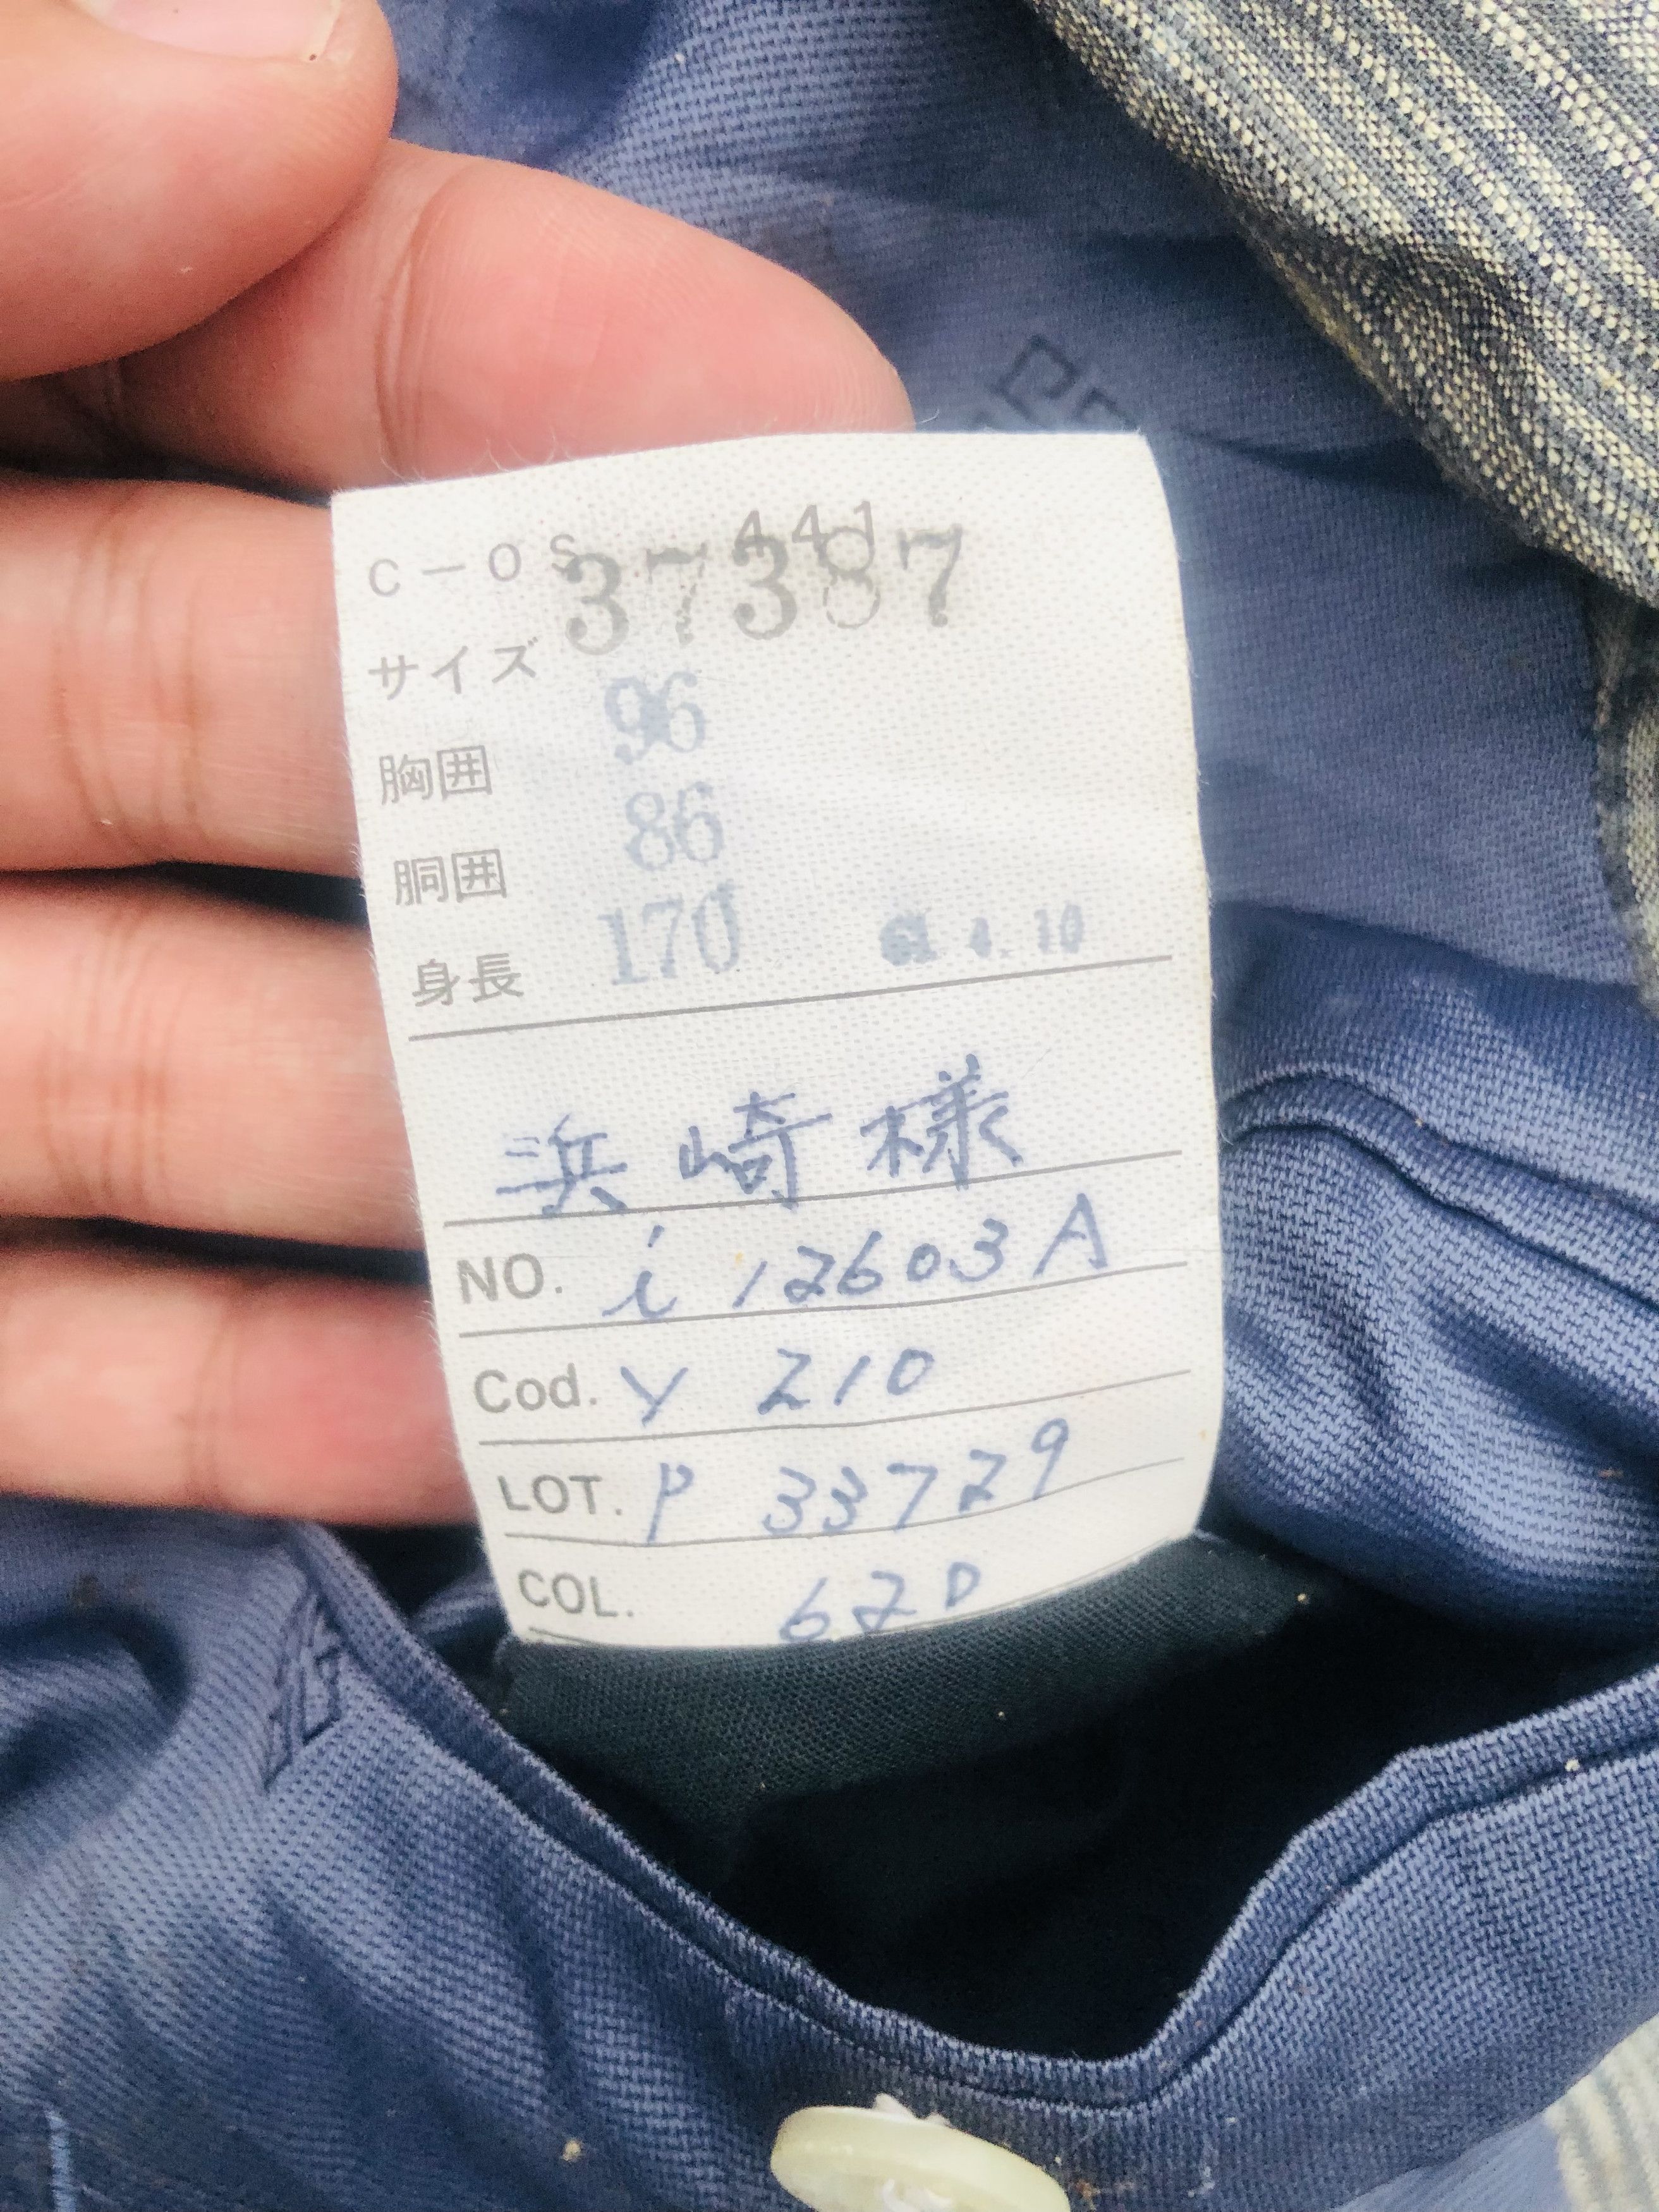 C－OS 441
37387
サイズ
胸囲 96
胴囲 86
身長 170
4.10
浜崎様
NO. i 12603A
Cod. Y 210
LOT. P 33729
COL. 62D